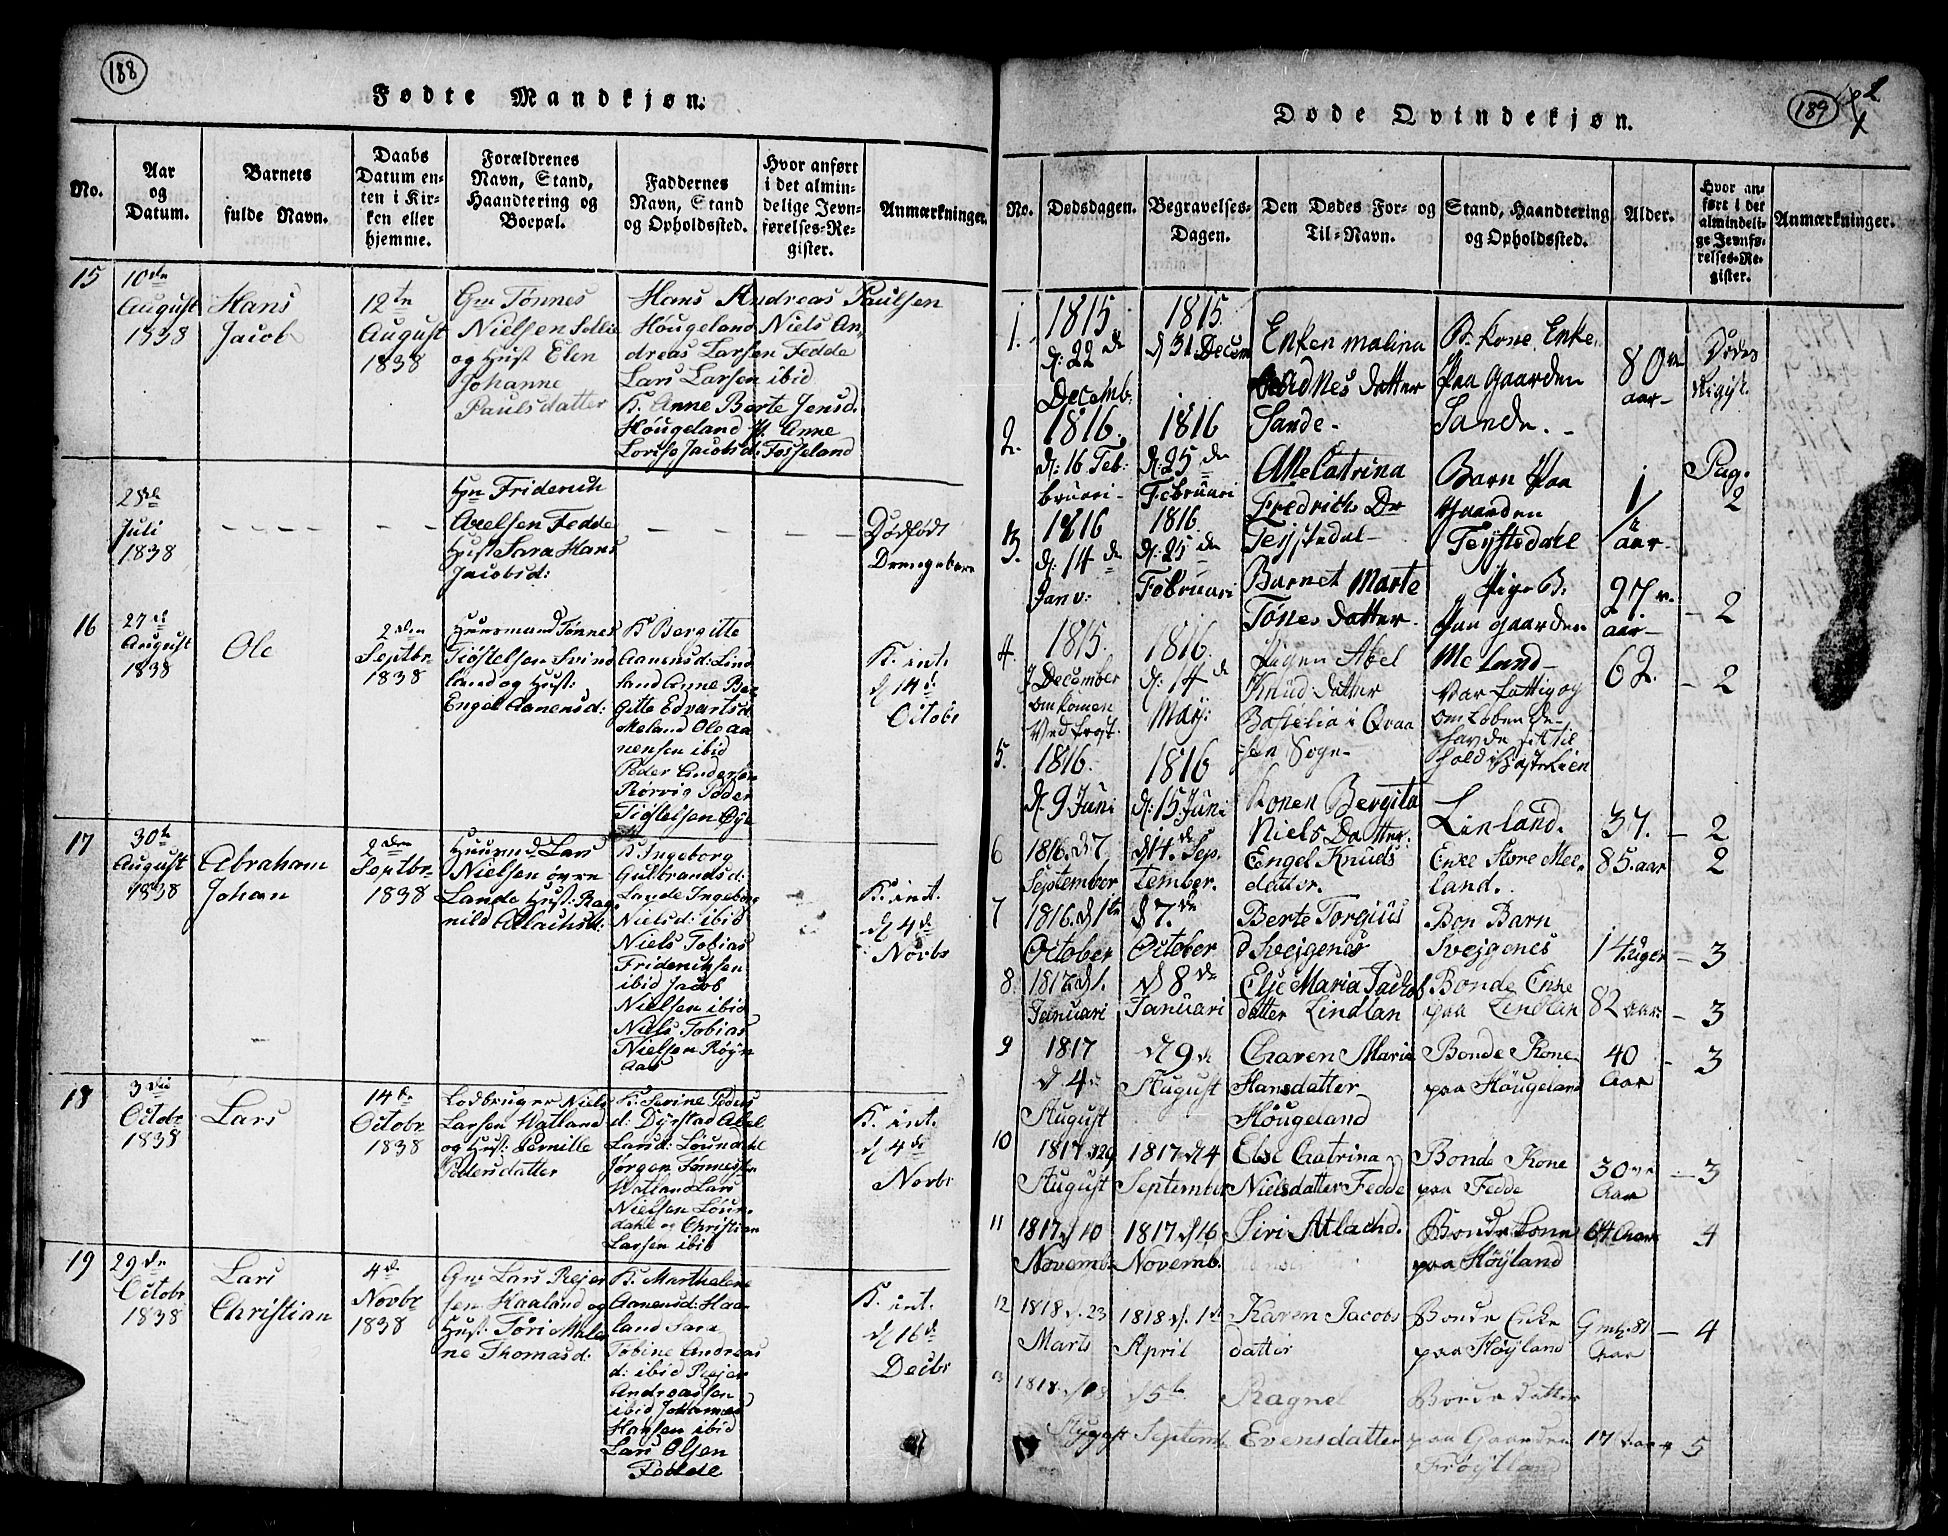 188
Fødte Mandkjøn.
No.
Aar
og
Datum.
Barnets
fulde Navn.
Daabs
Datum en-
ten i Kir-
ken eller
hjemme.
Forældrenes
Navn, Stand,
Haandtering og
Boepæl.
Faddernes
Navn, Stand
og Opholdssted.
Hvor anført
i det almin-
delige Jevn-
førelses-Re-
gister.
Anmærkninger.
15
10de
August
1838
Hans
Jacob
12te
August
1838
Gm Tønnes
Nielsen
og Hust Elen
Johanne
Paulsdatter
Hans Andreas Paulsen
Høugeland Niels An-
dreas Larsen Fedde
Lars Larsen ibid
K. Anne Berte Jensd.
Høugeland P. Anne
Jacobsd: Fosseland
Juli
1838
Gm Friderich
Axelsen Fedde
Hust Sara Hans
Jacobsd:
Dødfødt
Drengebarn
16
27de
August
1838
Ole
2den
Septbr
1838
Huusmand Tønnes
Tiøstelsen Svind
land og Hust:
Engel Aanensd:
K Bergitte
Aanensd: Lind
land Anne Ber
gitte Edvartsd
Meland Ole Aa
nensen ibid
Peder Anderse
Rørvig Peder
Tiøstelsen Øye
K. int.
d 14de
Octobr
17
30te
August
1838
Abraham
Johan
2den
Septbr
1838
Huusmd Lars
Nielsen øvre
Lande Hust: Rag
nild Atlachsd:
K Ingeborg
Gulbrandsd:
Lande Ingeborg
Nielsd: ibid
Niels Tobias
Friderichsen
ibid Jacob
Nielsen ibid
Niels Tobias
Nielsen Røyn
aas
K. int.
d 4de
Novbr
18
3die
Octobr
1838
Lars
14te
Octobr
1838
Lodbruger Niels
Larsen Watland
og Hust: Pernille
Pedersdatter
K: Sevine Peders
d: Dyrstad Abel
Larsd: Løundahl
Jørgen Tønnesen
Watland Lars
Nielsen Løun-
dahl og Christian
Larsen ibid
K. int.
d 4de
Novbr
19
29de
Octobr
1838
Lars
Christian
4de
Novbr
1838
Gm Lars Rejer
sen Haaland og
Hust: Tøri Male
ne Thomasd:
K. Marthelene
Aanensd: Haa
land Sara
Tobine Andreas
d: ibid Rejer
Andreassen
ibid
Hansen ibid
Lars Olsen
Fedde
K. int.
d 16de
Decbr
189
Døde Qvindekjøn.
No.
Dødsdagen.
Begravelses-
Dagen.
Den Dødes For- og
Til-Navn.
Stand, Haandtering
og Opholdssted.
Alder.
Hvor an-
ført i det
almindeli-
ge Jevnfø-
relses-Re-
gister.
Anmærkninger.
1.
1815
d: 22de
Decemb:
1815
d 31 Decem
Enken Malina
datter
Sande-
B. Kone, Enke,
Paa Gaarden
Sande. -
80
aar-
Dødes
Regist.
2.
1816,
d: 16 Feb:
bruari-
1816
d: 25de
Februari
Ane Catrina
Fredrichs Dr
Teistedal-
Barn Paa
Gaarden
Teistedahl
1/
aar-
Pag.
2
3.
1816
d: 14de
Janv:
1816
d: 25de
Februari
Barnet Marte
Tønes datter
Pige B.
Paa Gaarden
Meland-
27
aar-
- 2
4.
1815
7 December
omkomen
Ved Frost.
1816.
d: 14de
May:
Pigen Abel
Knud datter
i Qvaa
sen Sogn-
Var Fattig og
omløbende-
62.
- 2
5.
1816.
d. 9 Juni
1816
d: 15 Juni
Konen Bergita
Niels Datter
Linland.
37.
- 2
6
1816. d 7
September
d 14de Sep.
tember.
Engel Knuds
datter.
Enke Store Mee-
land.
85. aar
2
7
1816. d 1te
October
d 7.de
October
Berte Torgius
d Svejgenes
Bon Barn
Svejgenes
14 uger
- 3
8.
1817. d 1.
Januari
d 8de
Januari
Else Maria Jachob
datter Lindlan
Bonde Enke
paa Lindlan
82 aar
- 3
9
1817
d 4de
August
d 9de
August
Charen Marie
Hansdatter
Høugeland
Bonde Kone
paa Høugeland
40
Aar
- 3
10
1817 d 29
August
1817 d 4
September
Else Catrina
Nielsdatter Fedde
Bonde Kone
paa Fedde
30
Aar
- 3
11
1817 d 10
Novemb.
1817 d 16
Novemb.
Siri Atlachd.
Bonde Kone
paa Høyland
64 Aar
4
12
1818 d. 23
Marts
1818 d. 1te
April
Karen Jacobs
datter
Bonde Enke
paa Høyland
81
Aar
- 4
13
1818.
August
d 5te
Septemb.
Ragnel
Evensdatter
Bonde datter
paa Gaarden
Frøytland
17 Aar
5